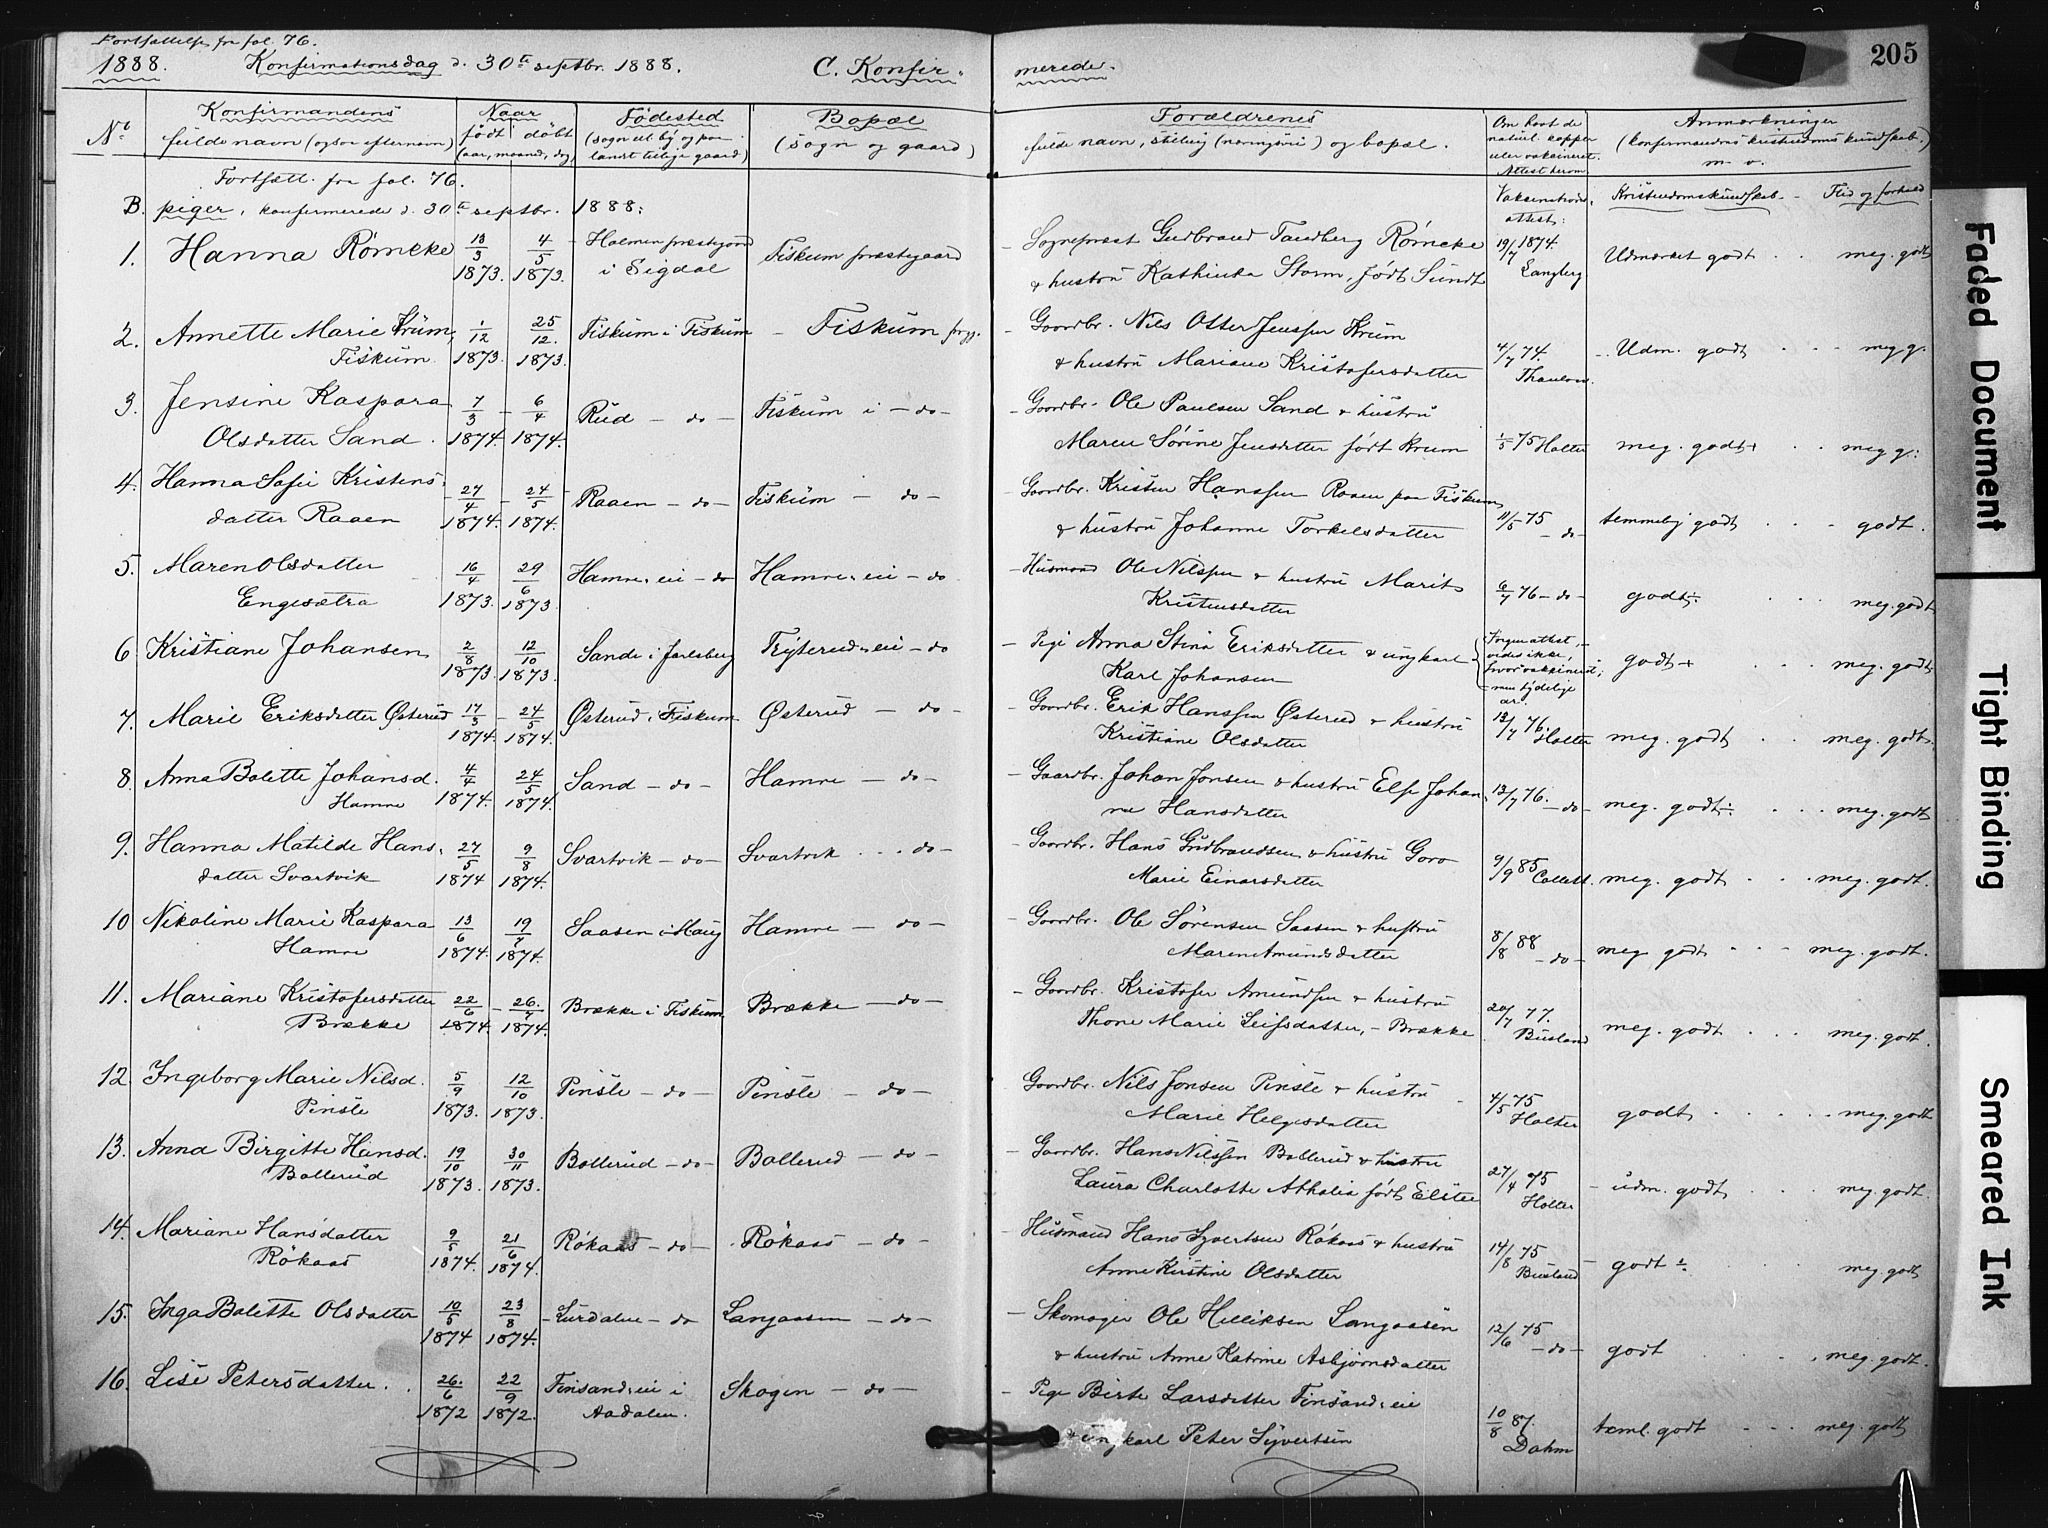 Fortsættelse fra fol. 76.
1888. Konfirmationsdag d. 30te septbr. 1888. C. Konfir- merede. 205
No Konfirmandens fulde navn (ogsaa efternavn) Naar født døbt (aar, maaned, dag) Fødested (sogn el. by og paa landet tillige gaard) Bopæl (sogn og gaard) Forældrenes fulde navn, stilling (næringsvei) og bopæl. Om havt de naturl. kopper eller vakcineret. Attest herom Anmærkninger (konfirmandens kristendoms kundskab.) m. v.
Fortsætt. fra fol. 76.
B. piger, konfirmerede d. 30te septbr. 1888: Vaksinations-attest: Kristendomskundskab - Flid og forhold
1. Hanna Römcke 13/3 1873. 4/5 1873. - Holmen præstegaard i Sigdal Fiskum præstegaard - Sognepræst Gudbrand Tandberg Römcke 19/7 1874. Langberg Udmærket godt . . meg. godt
& hustru Kathinka Storm, født Sundt
2. Annette Marie Krüm, Fiskum. 1/12 1873. 25/12. 1873. Fiskum i Fiskum - Fiskum prgj. - Gaardbr. Nils Otter Jenssen Krum 4/7 74. Thaulow. - Udm. godt . . . meg g.
& hustru Mariane Kristofersdatter
3. Jensine Kaspara Olsdatter Sand. 7/3 1874. - 6/4 1874. Rud - do - Fiskum i - do - - Gaardbr. Ole Paulsen Sand & hustru
Maren Sörine Jensdatter født Krum 1/5 75 Holter meg. godt+ . . meg g.
4. Hanna Sofie Kristens-datter Raaen 27/4 1874. - 24/5 1874. Raaen - do - Fiskum - do - - Gaardbr. Kristen Hanssen Raaen paa Fiskum
& hustru Johanne Torkelsdatter 11/5 75 - do - temmelig godt . . - godt.
5. Maren Olsdatter Engesætra 16/4 1873. 29/6 1873. Hamre-eie - do Hamre-eie - do - Husmand Ole Nilssen & hustru Marit
Kristensdatter 6/7 76 - do - godt÷ . . . meg. godt
6 Kristiane Johansen 2/8 1873. 12/10 1873. Sande i Jarlsberg Fryterud-eie - do - Pige Anna Stina Eriksdatter & ungkarl Karl Johansen Ingen attest, vides ikke, hvor vakcineret; men tydelige ar. godt + . . . meg. godt
7. Marie Eriksdatter Østerud 17/3 1874. - 24/5 1874. Østerud i Fiskum Østerud - do - - Gaardbr. Erik Hanssen Østerud & hustru
Kristiane Olsdatter 13/7 76. Holter meg. godt . . meg. godt.
8. Anna Bolette Johansd. Hamre 4/4 1874. 24/5 1874. Sand - do - Hamre - do - - Gaardbr. Johan Jonsen & hustru Else Johan-
ne Hansdatter 13/7 76. - do - meg. godt÷ . . . meg. godt
9. Hanna Matilde Hans-datter Svartvik 27/5 1874 9/8 1874. Svartvik - do - Svartvik . . . do - - Gaardbr. Hans Gudbrandsen & hustru Goro
Marie Einarsdatter 9/9 85 Collett. meg. godt . . . meg. godt.
10 Nikoline Marie Kaspara Hamre 13/6 1874. 19/7 1874. Saasen i Haug Hamre - do - - Gaardbr. Ole Sörensen Saasen & hustru
Maren Amundsdatter 8/8 88 - do - meg godt . . - meg. godt.
11. Mariane Kristofersdatter Brække 22/6 1874. - 26./7 1874. Brække i Fiskum Brække - do - - Gaardbr. Kristofer Amundsen & hustru
Thone Marie Leifsdatter, - Brække 20/7 77. Busland meg. godt . . meg. godt.
12. Ingeborg Marie Nilsd. Pinsle 5/9 1873. 12/10 1873. Pinsle - do - Pinsle - do - Gaardbr. Nils Jonsen Pinsle & hustru
Marie Helgesdatter 4/5 75 Holter godt . . . . . meg. godt
13. Anna Birgitte Hansd. Bollerud 19/10 1873. 30/11 1873. Bollerud - do - Bollerud - do - - Gaardbr. Hans Nilssen Bollerud & hustru
Laura Charlotte Athalia født Eilste 27/4 75 Holter - udm. godt . . . meg. godt.
14. Mariane Hansdatter Rökaas 9/5 1874. 21/6 1874. Rökaas - do - Rökaas - do - - Husmand Hans Syvertsen Rökaas & hustru
Anne Kirstine Olsdatter 14/8 75 Busland - godt ÷ . . . meg. godt
15. Inga Bolette Olsdatter 10/5 1874 23/8 1874. - Lurdalen - do Langaasen - do - - Skomager Ole Helliksen Langaasen 12/6 75 - do - godt . . . . meg. godt.
& hustru Anne Katrine Asbjørnsdatter
16. Lise Petersdatter. . 26./6 1872 22/9 1872. Finsand-eie i Aadalen. Skogen - do - - Pige Birte Larsdatter Finsand-eie
& ungkarl Peter Syvertsen 10/8 87. Dahm teml. godt - - meg. godt
Faded Document
Tight Binding
Smeared Ink